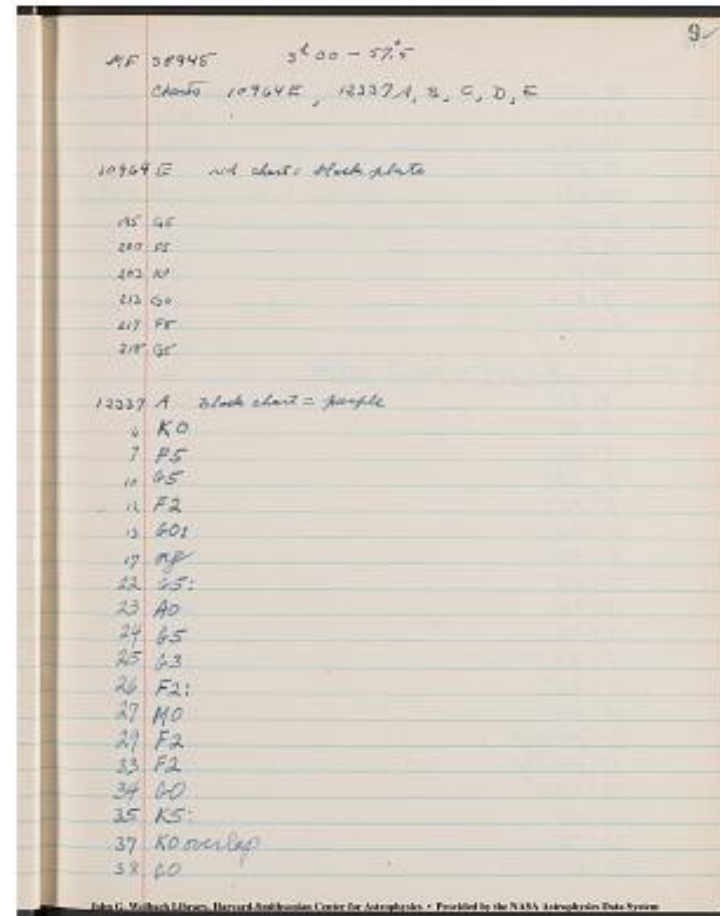 9
MF 38945 5h 00 - 57.5
Charts 10964E, 12337 A, B, C, D, E
10964 E chart = black plate
195 G5
200 F5
203
213 G0
217 F8
218 G5
12337 A Black chart = purple
6 K0
7 F5
10 G5
12 F2
13 G0:
17
22 G5:
23 A0
24 G5
25 G3
26 F2:
27 M0
29 F2
33 F2
34 G0
35 K5:
37 K0 overlap
38 G0
John G. Wolbach Library, Harvard-Smithsonian Center for Astrophysics • Provided by the NASA Astrophysics Data System